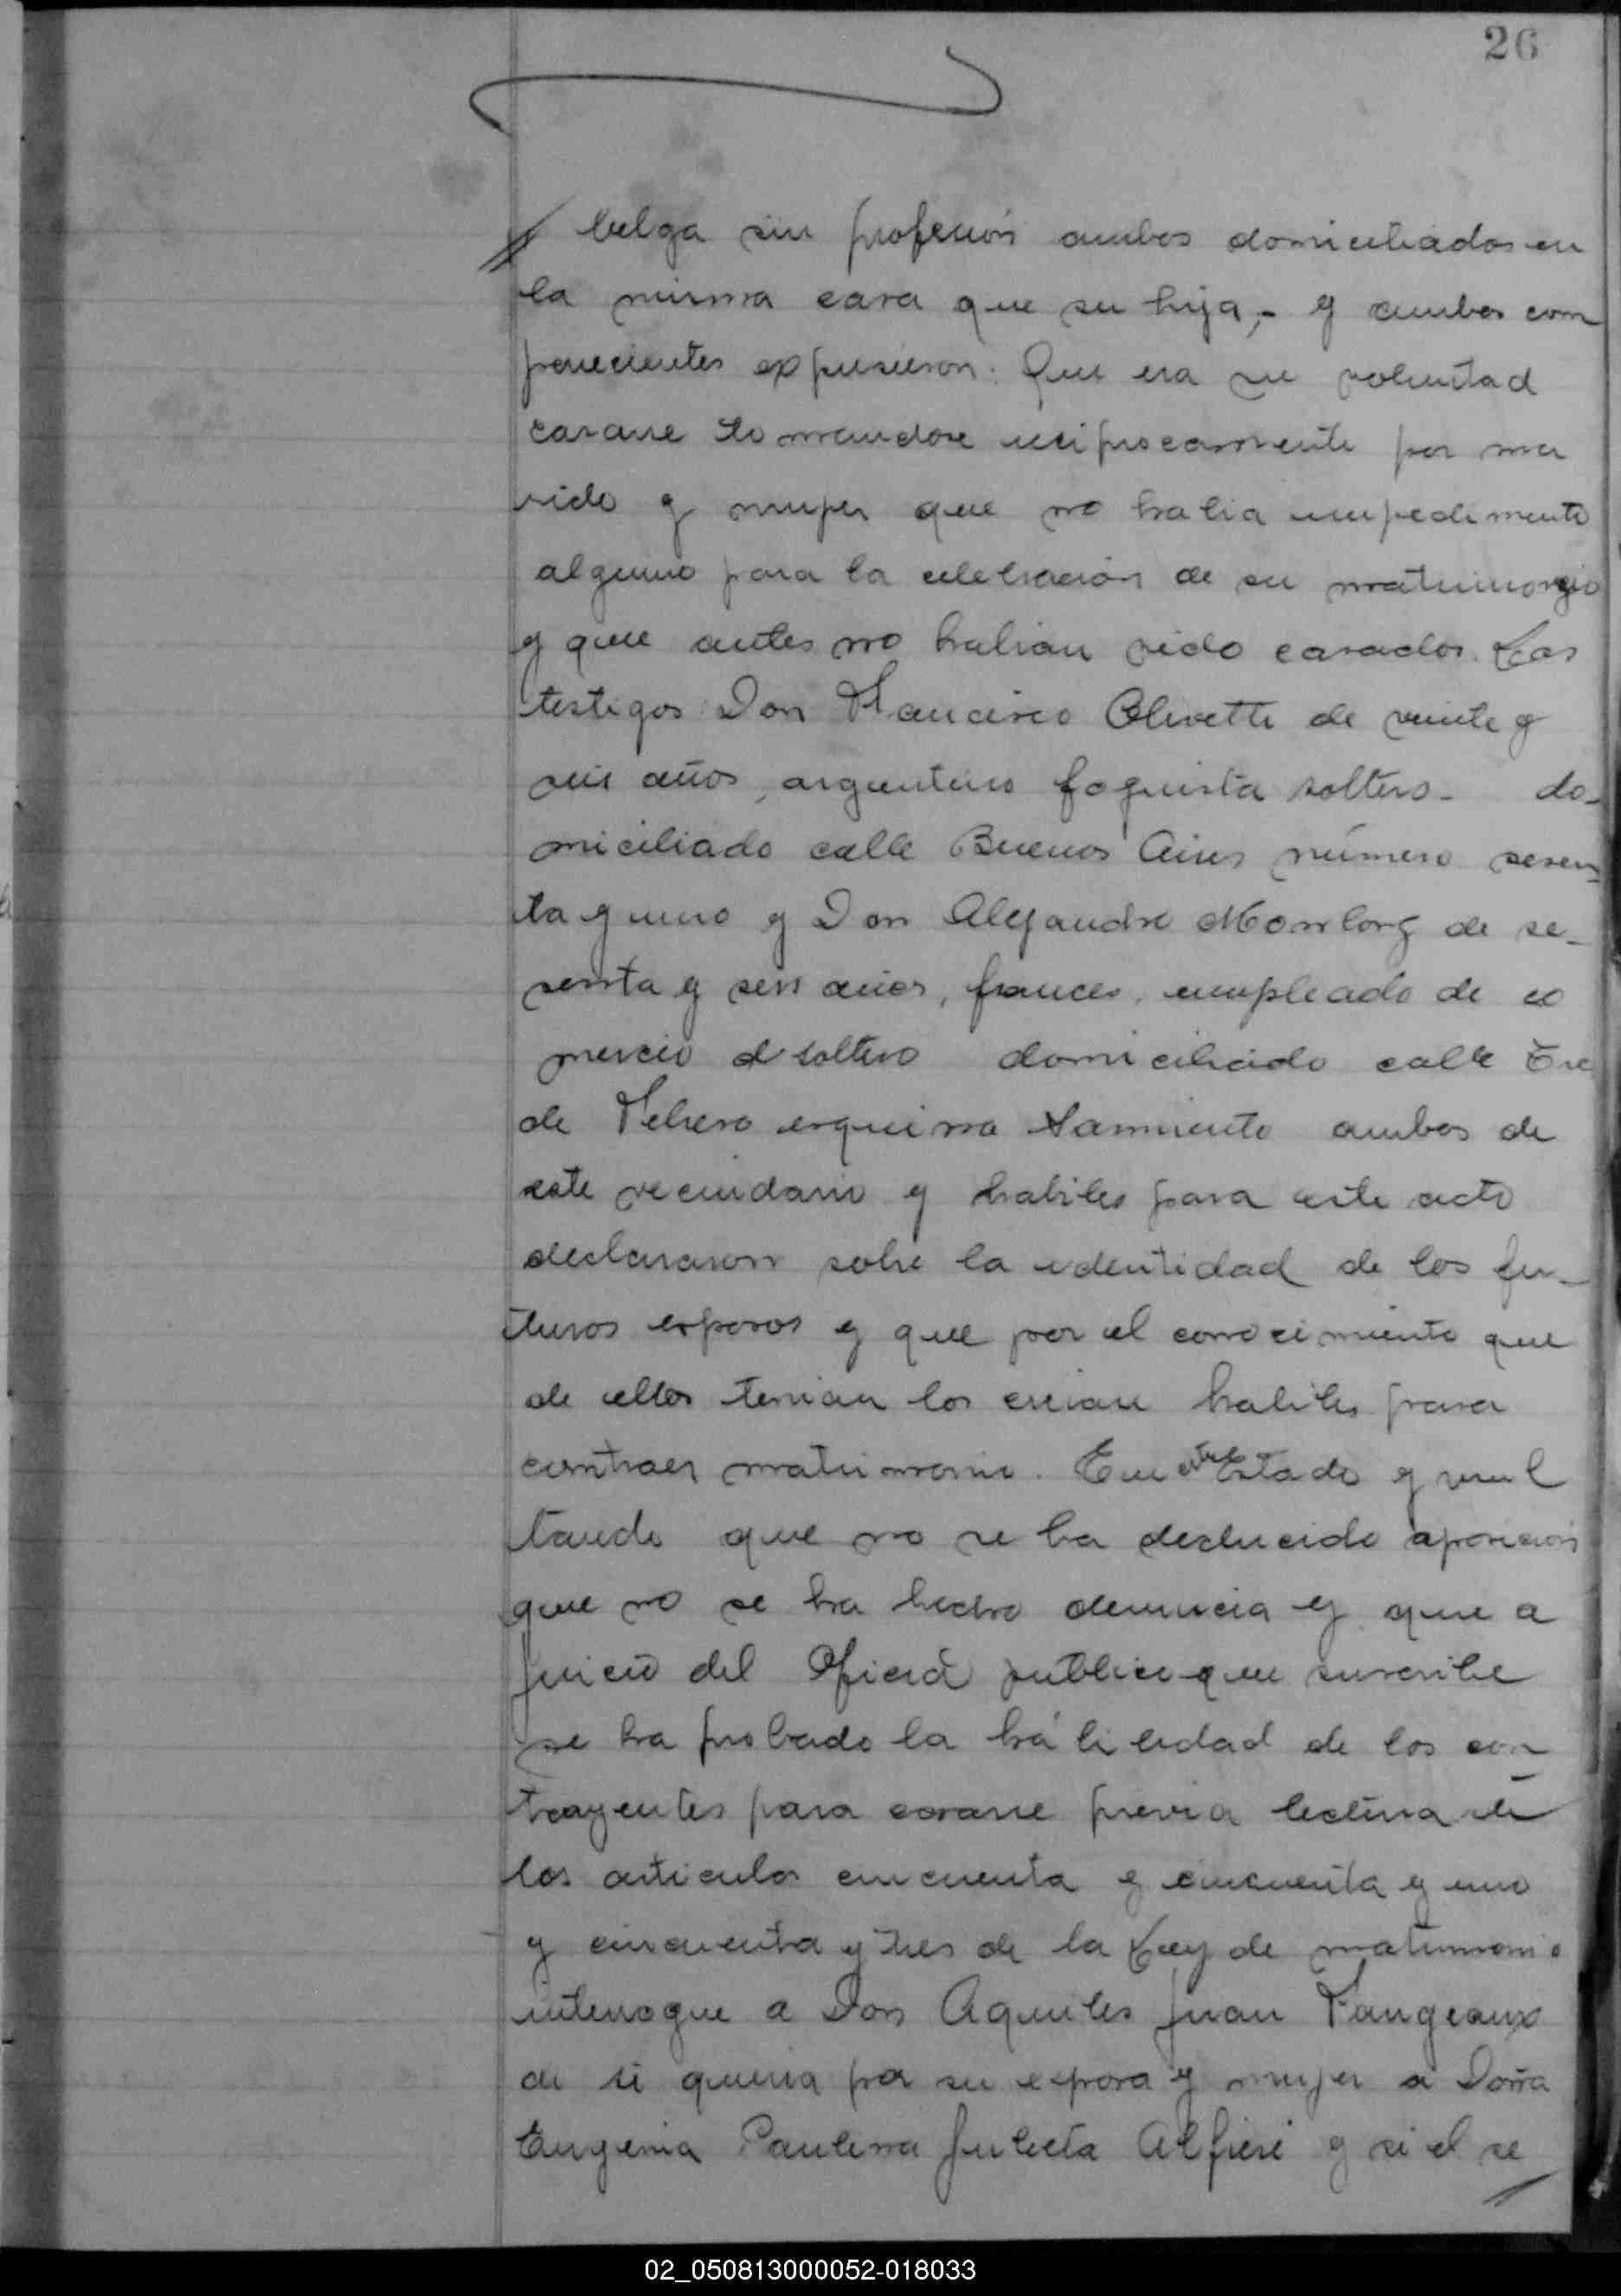 26
belga sin profesión ambos domiciliados en
la misma casa que su hija,- y ambos com
parecientes expusieron: Que era su voluntad
casarse tomandose reciprocamente por ma
rido y mujer que no habia impedimento
alguno para la celebración de su matrimonio
y que antes no habian sido casados. Los
testigos: Don Francisco Olivetti de veinte y
seis años, argentino foguista soltero- do-
miciliado calle Buenos Aires número sesen-
ta y uno y Don Alejandro de se-
senta y seis años, frances, empleado de co
mercio soltero domiciliado calle Tres
de Febrero esquina Sarmiento ambos de
este vecindario y habiles para este acto
declararon sobre la identidad de los fu-
turos esposos y que por el conocimiento que
de ellos tenian los creian habiles para
contraer matrimonio. En este Estado y resul
tando que no se ha deducido oposición
que no se ha hecho denuncia y que a
juicio del Oficial publico que suscribe
se ha probado la habilidad de los con
trayentes para casarse previa lectura de
los articulos cincuenta y cincuenta y uno
y cincuenta y tres de la Ley de matrimonio
interrogue a Don Aquiles Juan Fangeaux
de si queria por su esposa y mujer a Doña
Eugenia Paulina Julieta Alfieri y si el se
02_050813000052-018033